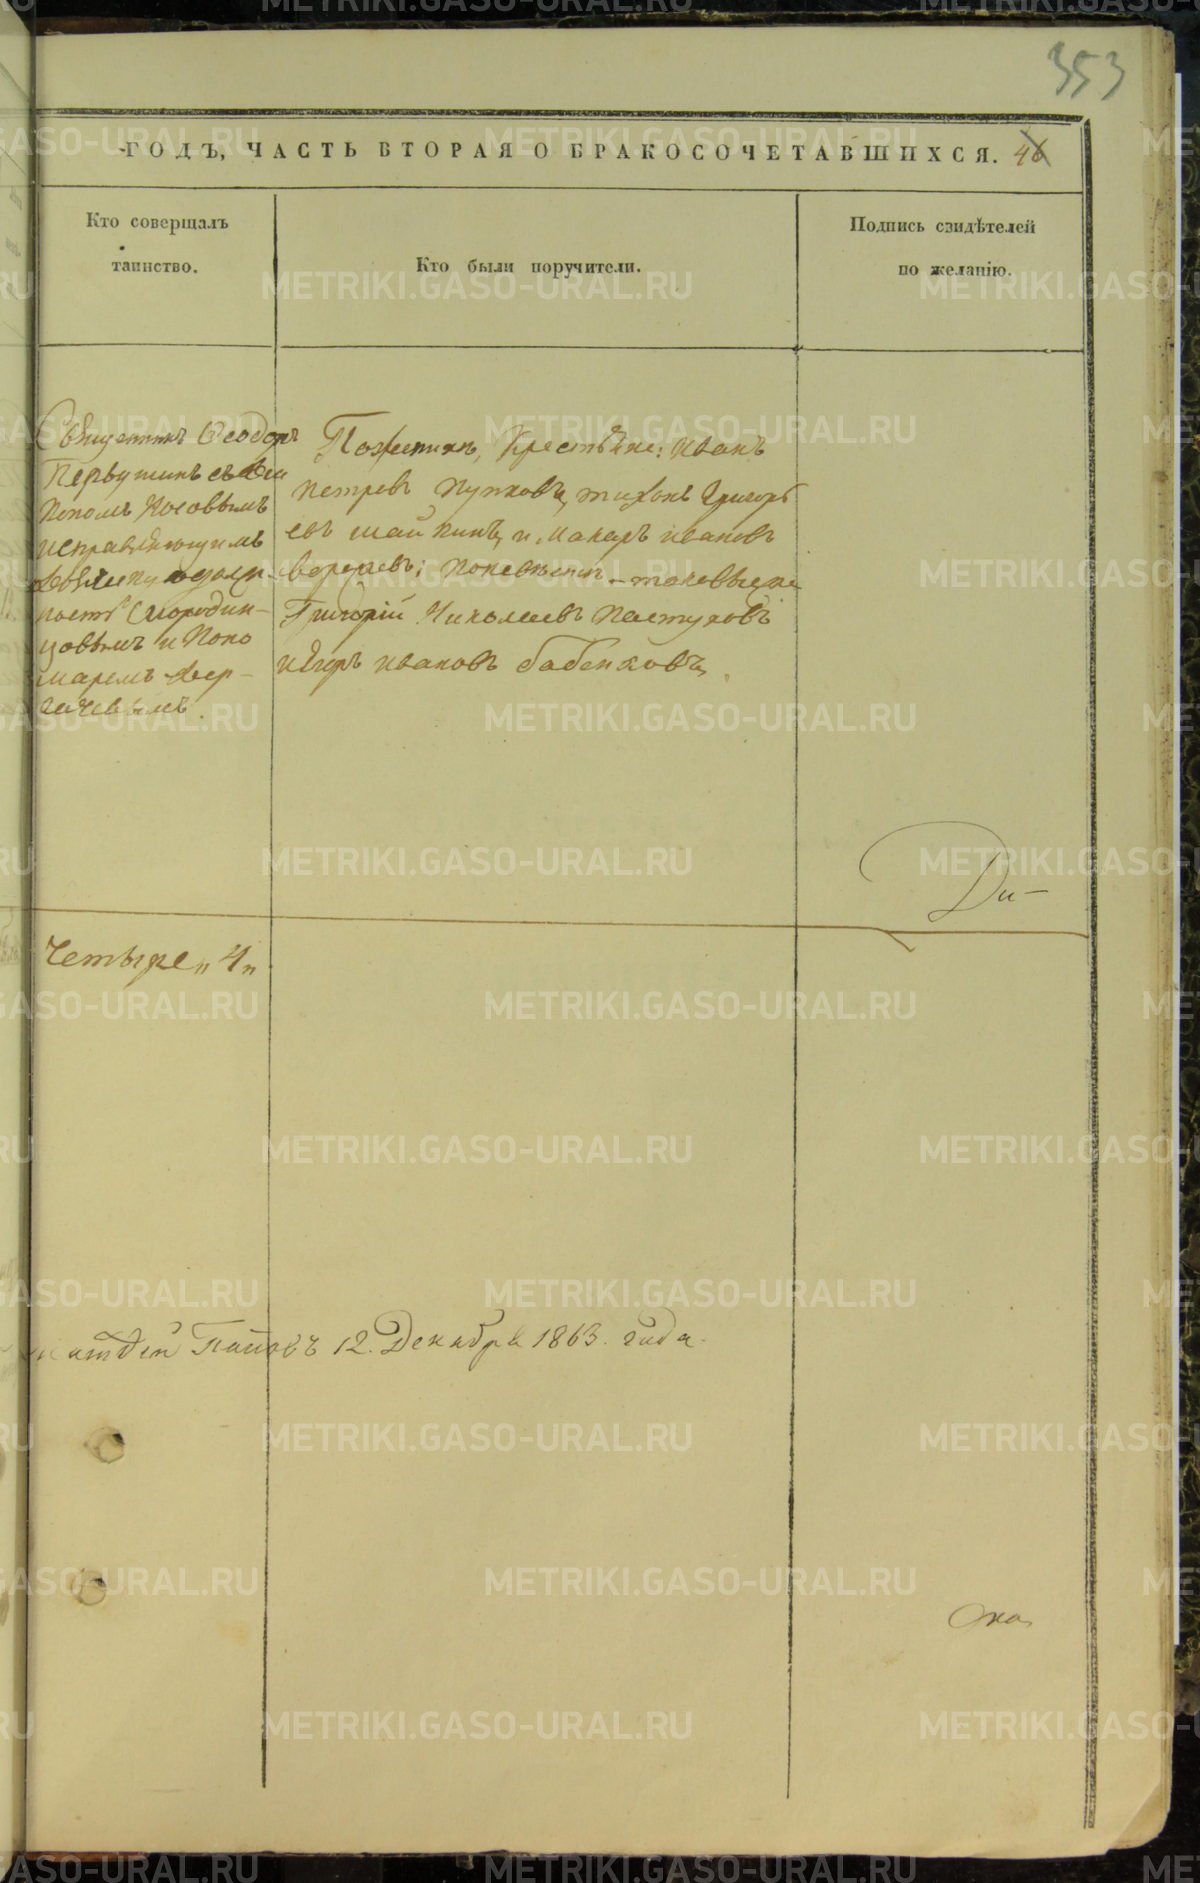 353
ГОДЪ, ЧАСТЬ ВТОРАЯ О БРАКОСОЧЕТАВШИХСЯ. 46
Кто совершалъ
таинство.
Кто были поручители.
Подпись свидѣтелей
по желанію.
Священникъ Ѳеодоръ
Первушинъ съ Діа
кономъ Носовымъ
исправляющимъ
должность Смородин-
цовымъ и Поно
маремъ
По женихѣ, Крестьяне: Иванъ
Петровъ Пупковъ, Тихонъ Григорь
евъ Шайкинъ, и Макаръ Ивановъ
; по невѣстѣ - таковые же
Григорій Николаевъ Пастуховъ
и Егоръ Ивановъ Бабенковъ.
Ди-
Четыре „4„
Поповъ 12. Декабря 1863. года.
METRIKI.GASO-URAL.RU